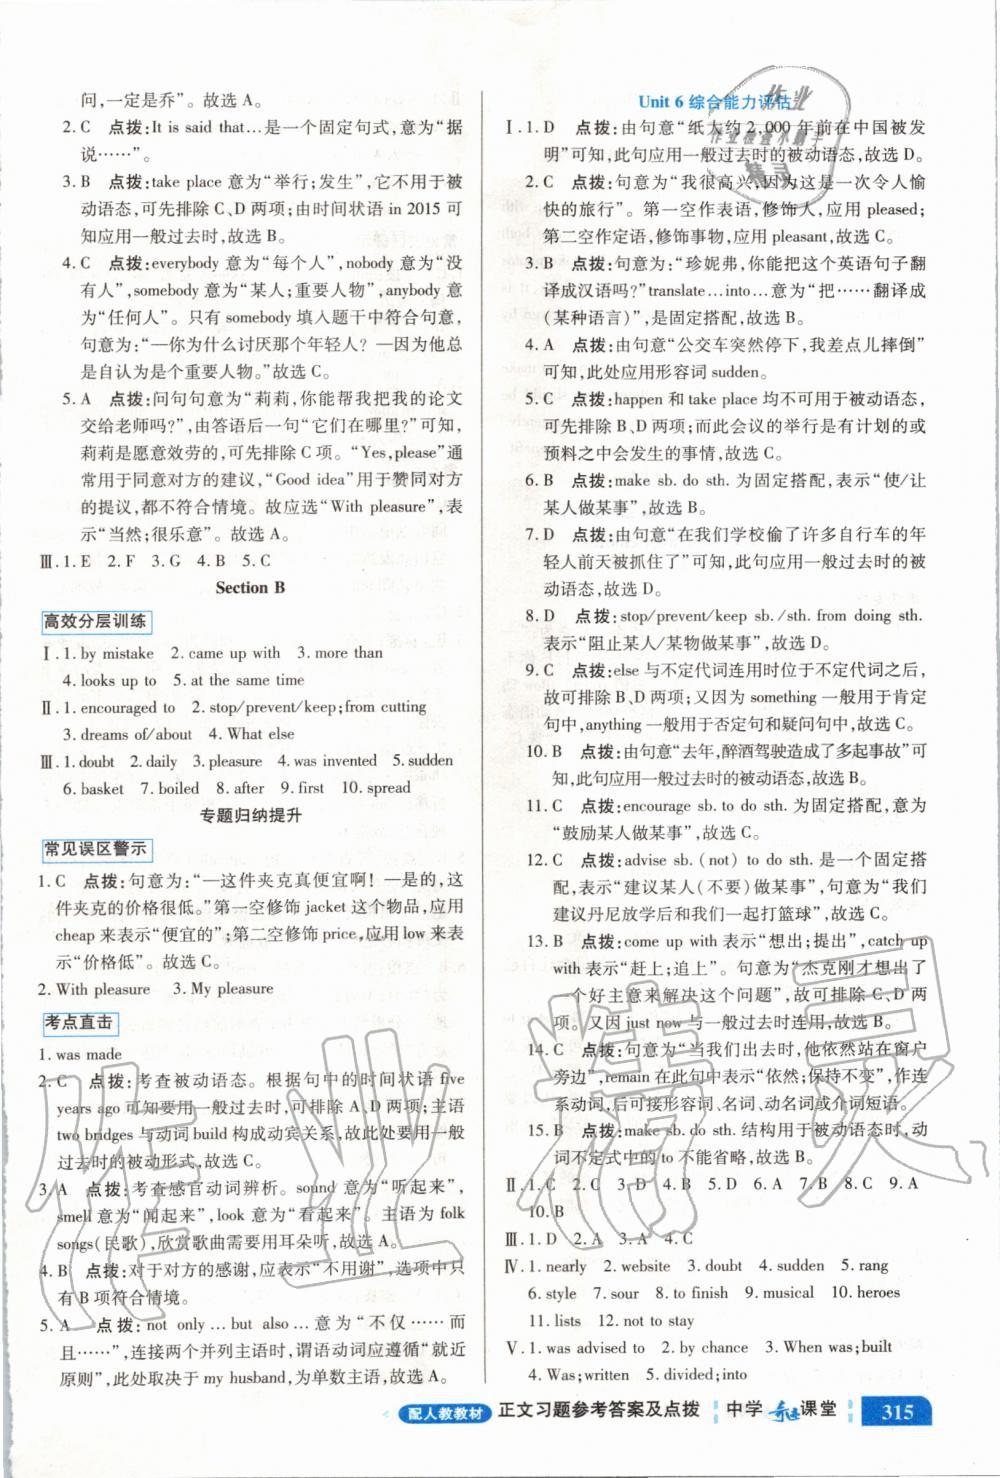 问,一定是乔”。故选 A。
2. C　点拨:It is said that…是一个固定句式,意为“据
说……”。
3. B　点拨:take place 意为“举行;发生”,它不用于被
动语态,可先排除 C、D 两项;由时间状语 in 2015 可
知应用一般过去时,故选 B。
4. C　点拨:everybody 意为“每个人”,nobody 意为“没
有人”,somebody 意为“某人;重要人物”,anybody 意
为“任何人”。只有 somebody 填入题干中符合句意,
句意为:“—你为什么讨厌那个年轻人? —因为他总
是自认为是个重要人物。”故选 C。
5. A　点拨:问句句意为“莉莉,你能帮我把我的论文
交给老师吗?”,由答语后一句“它们在哪里?”可知,
莉莉是愿意效劳的,可先排除 C 项。“Yes,please”通
常用于同意对方的建议,“Good idea”用于赞同对方
的提议,都不符合情境。故应选“With pleasure”,表
示“当然;很乐意”。故选 A。
Ⅲ. 1. E　2. F　3. G　4. B　5. C
Section B
高效分层训练
Ⅰ. 1. by mistake　2. came up with　3. more than
4. looks up to　5. at the same time
Ⅱ. 1. encouraged to　2. stop/prevent/keep;from cutting
3. dreams of/about　4. What else
Ⅲ. 1. doubt　2. daily　3. pleasure　4. was invented　5. sudden
6. basket　7. boiled　8. after　9. first　10. spread
专题归纳提升
常见误区警示
1. C　点拨:句意为:“—这件夹克真便宜啊! —是的,这
件夹克的价格很低。”第一空修饰 jacket 这个物品,应用
cheap 来表示“便宜的”;第二空修饰 price,应用 low 来表
示“价格低”。故选 C。
2. With pleasure　3. My pleasure
考点直击
1. was made
2. C　点拨:考查被动语态。根据句中的时间状语 five
years ago 可知要用一般过去时,可排除 A、D 两项;主语
two bridges 与动词 build 构成动宾关系,故此处要用一般
过去时的被动形式,故选 C。
3. A　点拨:考查感官动词辨析。sound 意为“听起来”,
smell 意为“闻起来”,look 意为“看起来”。主语为 folk
songs(民歌),欣赏歌曲需要用耳朵听,故选 A。
4. B　点拨:对于对方的感谢,应表示“不用谢”,选项中只
有 B 项符合情境。
5. A　点拨:not only…but also…意为“不仅……而
且……”,连接两个并列主语时,谓语动词应遵循“就近
原则”,此处取决于 my husband,为单数主语,故选 A。
Unit 6 综合能力评估
Ⅰ. 1. D　点拨:由句意“纸大约 2,000 年前在中国被发
明”可知,此句应用一般过去时的被动语态,故选 D。
2. C　点拨:句意为“我很高兴,因为这是一次令人愉
快的旅行”。第一空作表语,修饰人,应用 pleased;
第二空作定语,修饰事物,应用 pleasant,故选 C。
3. B　点拨:句意为:“珍妮弗,你能把这个英语句子翻
译成汉语吗?”translate…into…意为“把……翻译成
(某种语言)”,是固定搭配,故选 B。
4. A　点拨:由句意“公交车突然停下,我差点儿摔倒”
可知,此处应用形容词 sudden。
5. C　点拨:happen 和 take place 均不可用于被动语态,
可先排除 B、D 两项;而此会议的举行是有计划的或
预料之中会发生的事情,故选 C。
6. B　点拨:make sb. do sth. 为固定搭配,表示“使/让
某人做某事”,故选 B。
7. B　点拨:由句意“在我们学校偷了许多自行车的年
轻人前天被抓住了”可知,此句应用一般过去时的被
动语态,故选 B。
8. D　点拨:stop/prevent/keep sb. /sth. from doing sth.
表示“阻止某人/某物做某事”,故选 D。
9. C　点拨:else 与不定代词连用时位于不定代词之后,
故可排除 B、D 两项;又因为 something 一般用于肯定
句中,anything 一般用于否定句和疑问句中,故选 C。
10. B　点拨:由句意“去年,醉酒驾驶造成了多起事故”可
知,此句应用一般过去时的被动语态,故选 B。
11. C　点拨:encourage sb. to do sth. 为固定搭配,意为
“鼓励某人做某事”,故选 C。
12. C　点拨:advise sb. (not) to do sth. 是一个固定搭
配,表示“建议某人(不要)做某事”,句意为“我们
建议丹尼放学后和我们一起打篮球”,故选 C。
13. B　点拨:come up with 表示“想出;提出”,catch up
with 表示“赶上;追上”。句意为“杰克刚才想出了
一个好主意来解决这个问题”,故可排除 C、D 两
项。又因 just now 与一般过去时连用,故选 B。
14. C　点拨:句意为“当我们出去时,他依然站在窗户
旁边”,remain 在此句中表示“依然;保持不变”,作连
系动词,后可接形容词、名词、动名词或介词短语。
15. B　点拨:make sb. do sth. 结构用于被动语态时,动
词不定式中的 to 不能省略,故选 B。
Ⅱ. 1. C　2. C　3. D　4. C　5. D　6. A　7. B　8. C　9. A
10. B
Ⅲ. 1. D　2. A　3. A　4. C
Ⅳ. 1. nearly　2. website　3. doubt　4. sudden　5. rang
6. style　7. sour　8. to finish　9. musical　10. heroes
11. lists　12. not to stay
Ⅴ. 1. was advised to　2. by chance　3. When was;built
4. Was;written　5. divided;into
配人教教材　正文习题参考答案及点拨　中学奇迹课堂　315
作业
作业检查小助手
精灵
作业精灵